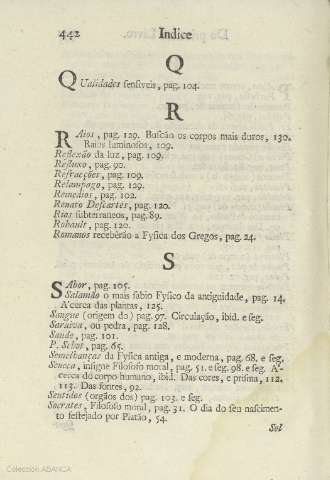 442 Indice
Q
QUalidades sensiveis, pag. 104.
R
RAios, pag. 129. Buscão os corpos mais duros, 130.
Raios luminosos, 109.
Reflexão da luz, pag. 109.
Refluxo, pag. 90.
Refracções, pag. 109.
Relampago, pag. 129.
Remedios, pag. 102.
Renato Descartes, pag. 120.
Rias subterraneos, pag. 89.
Rohault, pag. 120.
Romanos receberão a Fysica dos Gregos, pag. 24.
S
SAbor, pag. 105.
Salamão o mais sabio Fysico da antiguidade, pag. 14.
A'cerca das plantas, 125.
Sangue (origem do) pag. 97. Circulação, ibid. e seg.
Saraiva, ou pedra, pag. 128.
Saude, pag. 101.
P. Schot, pag. 65.
Semelhanças da Fysica antiga, e moderna, pag. 68. e seg.
Seneca, insigne Filosofo moral, pag. 51. e seg. 98. e seg. A'-
cerca do corpo humano, ibid. Das cores, e prisma, 112.
113. Das fontes, 92.
Sentidos (orgãos dos) pag. 103. e seg.
Socrates, Filosofo moral, pag. 31. O dia do seu nascimen-
to festejado por Platão, 54.
Sol
Colección ABANCA